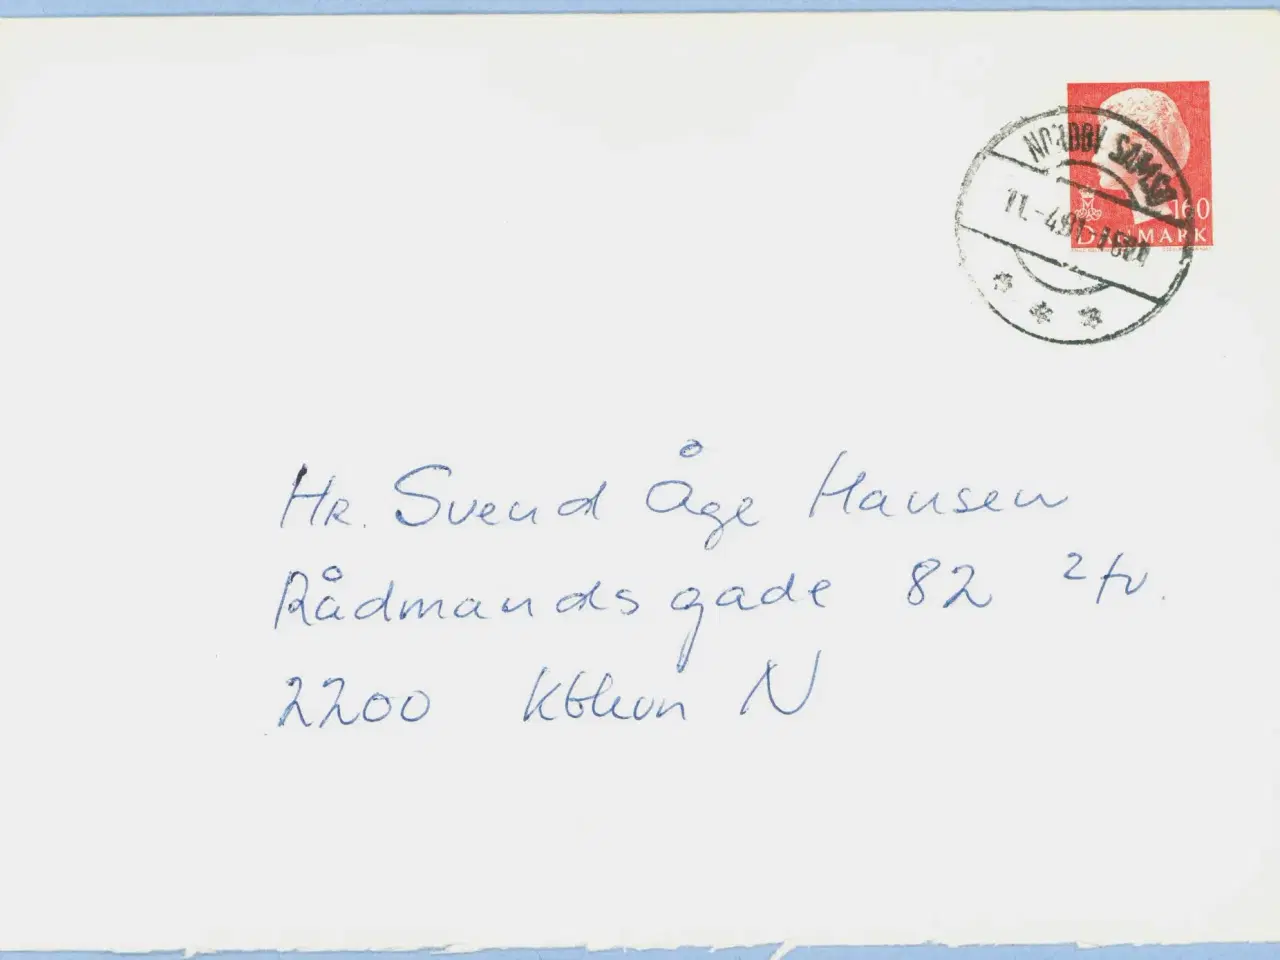 NORDBY SAMSØ
160
DANMARK
Hr. Svend Åge Hansen
Rådmandsgade 82 2 tv.
2200 Kbhvn N